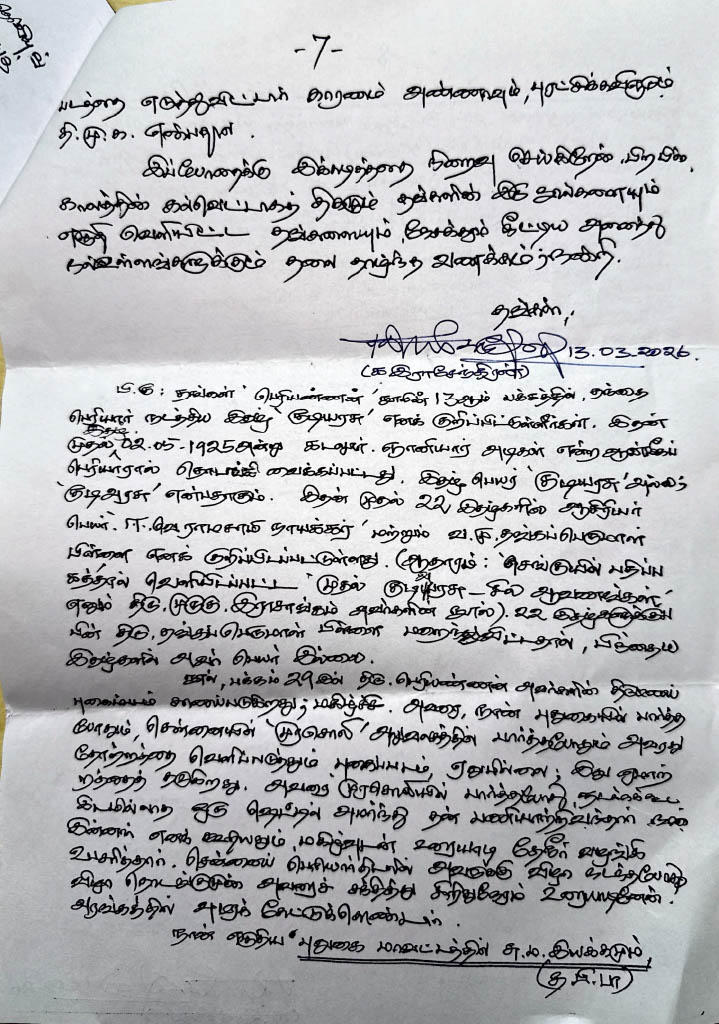 -7-
படத்தை எடுத்துவிட்டார் காரணம் அண்ணாவும், புரட்சிக்கவிஞரும்
தி.மு.க. என்பதால்.
இப்போதைக்கு இக்கடிதத்தை நிறைவு செய்கிறேன். பிற பின்.
காலத்தின் கல்வெட்டாகத் திகழும் தங்களின் இந் நூல்களையும்
எழுதி வெளியிட்ட தங்களையும், சேகரம் தீட்டிய அனைத்து
நல்உள்ளங்களுக்கும் தலை தாழ்ந்த வணக்கம்! நன்றி.
தங்கள்,
13.03.2026.
(க.இராசேந்திரன்)
பி.கு: தங்கள் 'பெரியண்ணன்' நூலின் 13ஆம் பக்கத்தில், தந்தை
பெரியார் நடத்திய இதழ் 'குடியரசு' எனக் குறிப்பிட்டுள்ளீர்கள். இதன்
முதல் இதழ் 02.05.1925 அன்று கடலூர். ஞானியார் அடிகள் என்ற ஆன்மீகப்
பெரியாரால் தொடங்கி வைக்கப்பட்டது. இதழ் பெயர் 'குடியரசு' அல்ல;
'குடிஅரசு' என்பதாகும். இதன் முதல் 22 இதழ்களில் ஆசிரியர்
பெயர். ஈ.வெ.ராமசாமி நாயக்கர் மற்றும் வ.மு.தங்கப்பெருமாள்
பிள்ளை எனக் குறிப்பிடப்பட்டுள்ளது. (ஆதாரம்: பதிப்ப
கத்தால் வெளியிடப்பட்ட 'முதல் குடியரசு - சில ஆவணங்கள்'
எனும் திரு. முருகு. இராசாங்கம் அவர்களின் நூல்). 22 இதழ்களுக்குப்
பின் திரு. தங்கப்பெருமாள் பிள்ளை மறைந்துவிட்டதால், பிந்தைய
இதழ்களில் அவர் பெயர் இல்லை.
நூல், பக்கம் 29 இல் திரு. பெரியண்ணன் அவர்களின்
புகைப்படம் காணப்படுகிறது; மகிழ்ச்சி. அவரை, நான் புதுகையில் பார்த்த
போதும், சென்னையின் 'முரசொலி' அலுவலகத்தில் பார்த்தபோதும் அவரது
தோற்றத்தை வெளிப்படுத்தும் புகைபடம், ஏதுமில்லை; இது ஏமாற்
றத்தைத் தருகிறது. அவரை முரசொலியில் பார்த்தபோது நடக்கக்கூட
இடமில்லாத ஒரு ஷெட்டில் அமர்ந்து தன் பணியாற்றிவந்தார். நான்
இன்னார் எனக் கூறியதும், மகிழ்வுடன் உரையாடி தேநீர் வழங்கி
உபசரித்தார். சென்னைப் பெரியார் திடலில் அவருக்கு விழா நடந்தபோது
விழா தொடங்குமுன் அவரைச் சந்தித்து சிறிதுநேரம் உரையாடினேன்.
அரங்கத்தில் கேட்டுக்கொண்டார்.
நான் எழுதிய "புதுகை மாவட்டத்தின் சு.ம.இயக்கமும்,
(த.பி.பா)